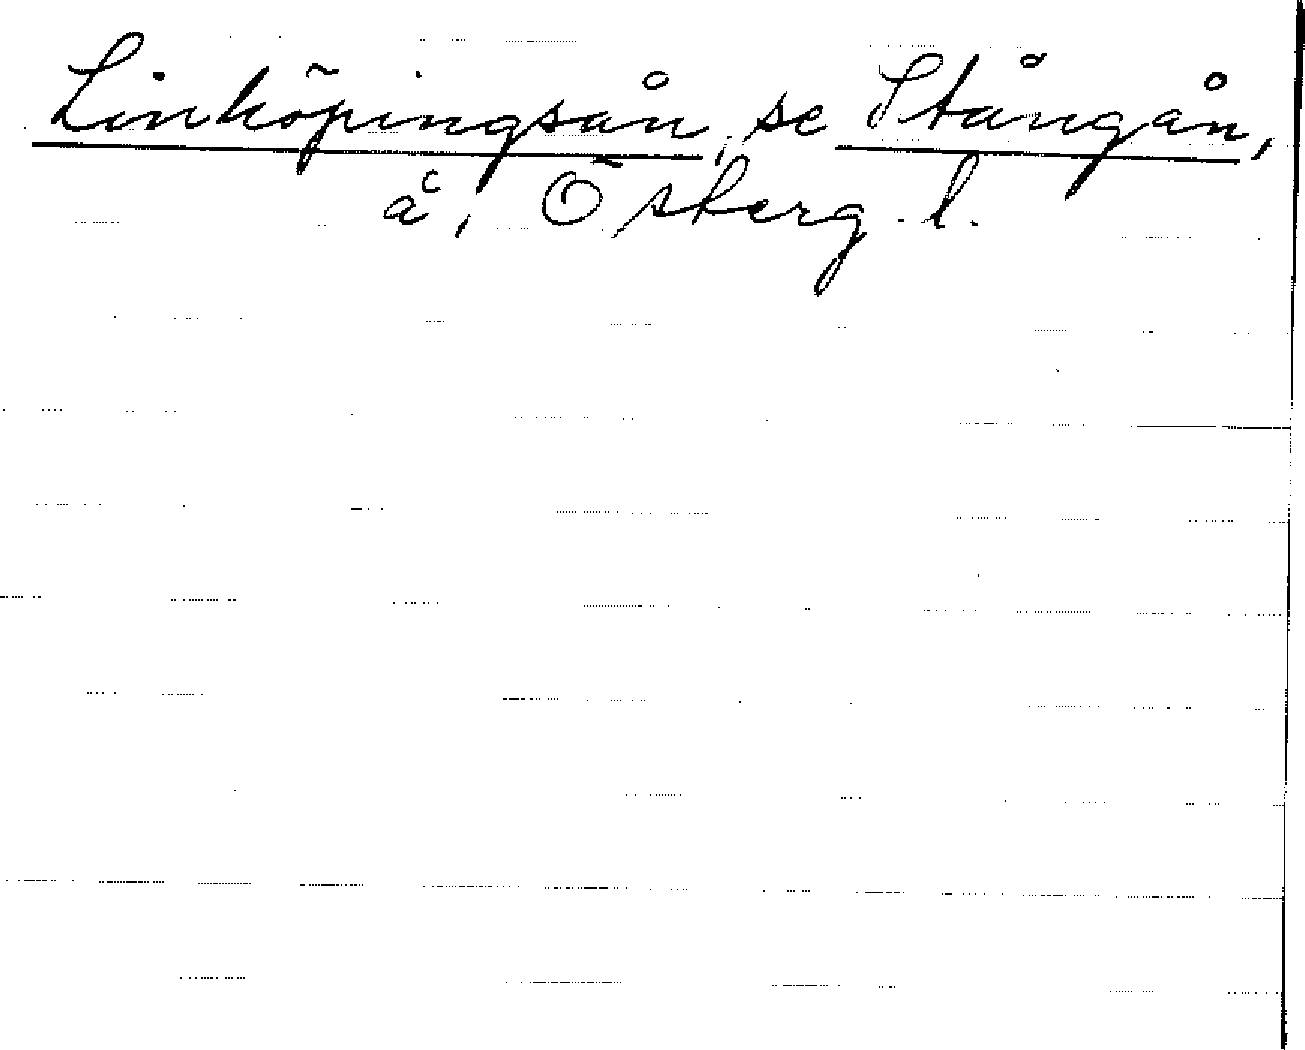 Linköpingsån, se Stångån,
å, Österg. l.